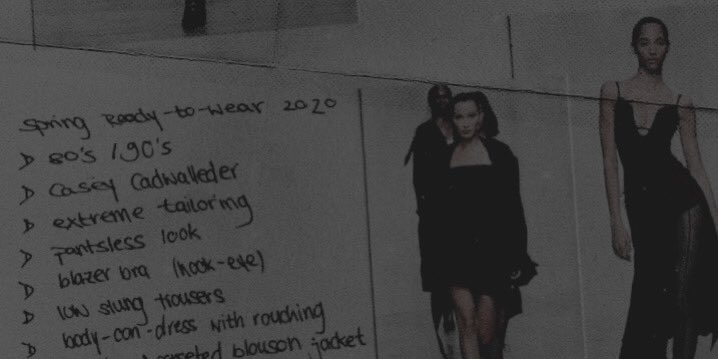 Spring Ready-to-Wear 2020
80's / 90's
Casey Cadwalleder
extreme tailoring
pantsless look
blazer bra (hook-eye)
low slung trousers
body-con-dress with rouching
blouson jacket